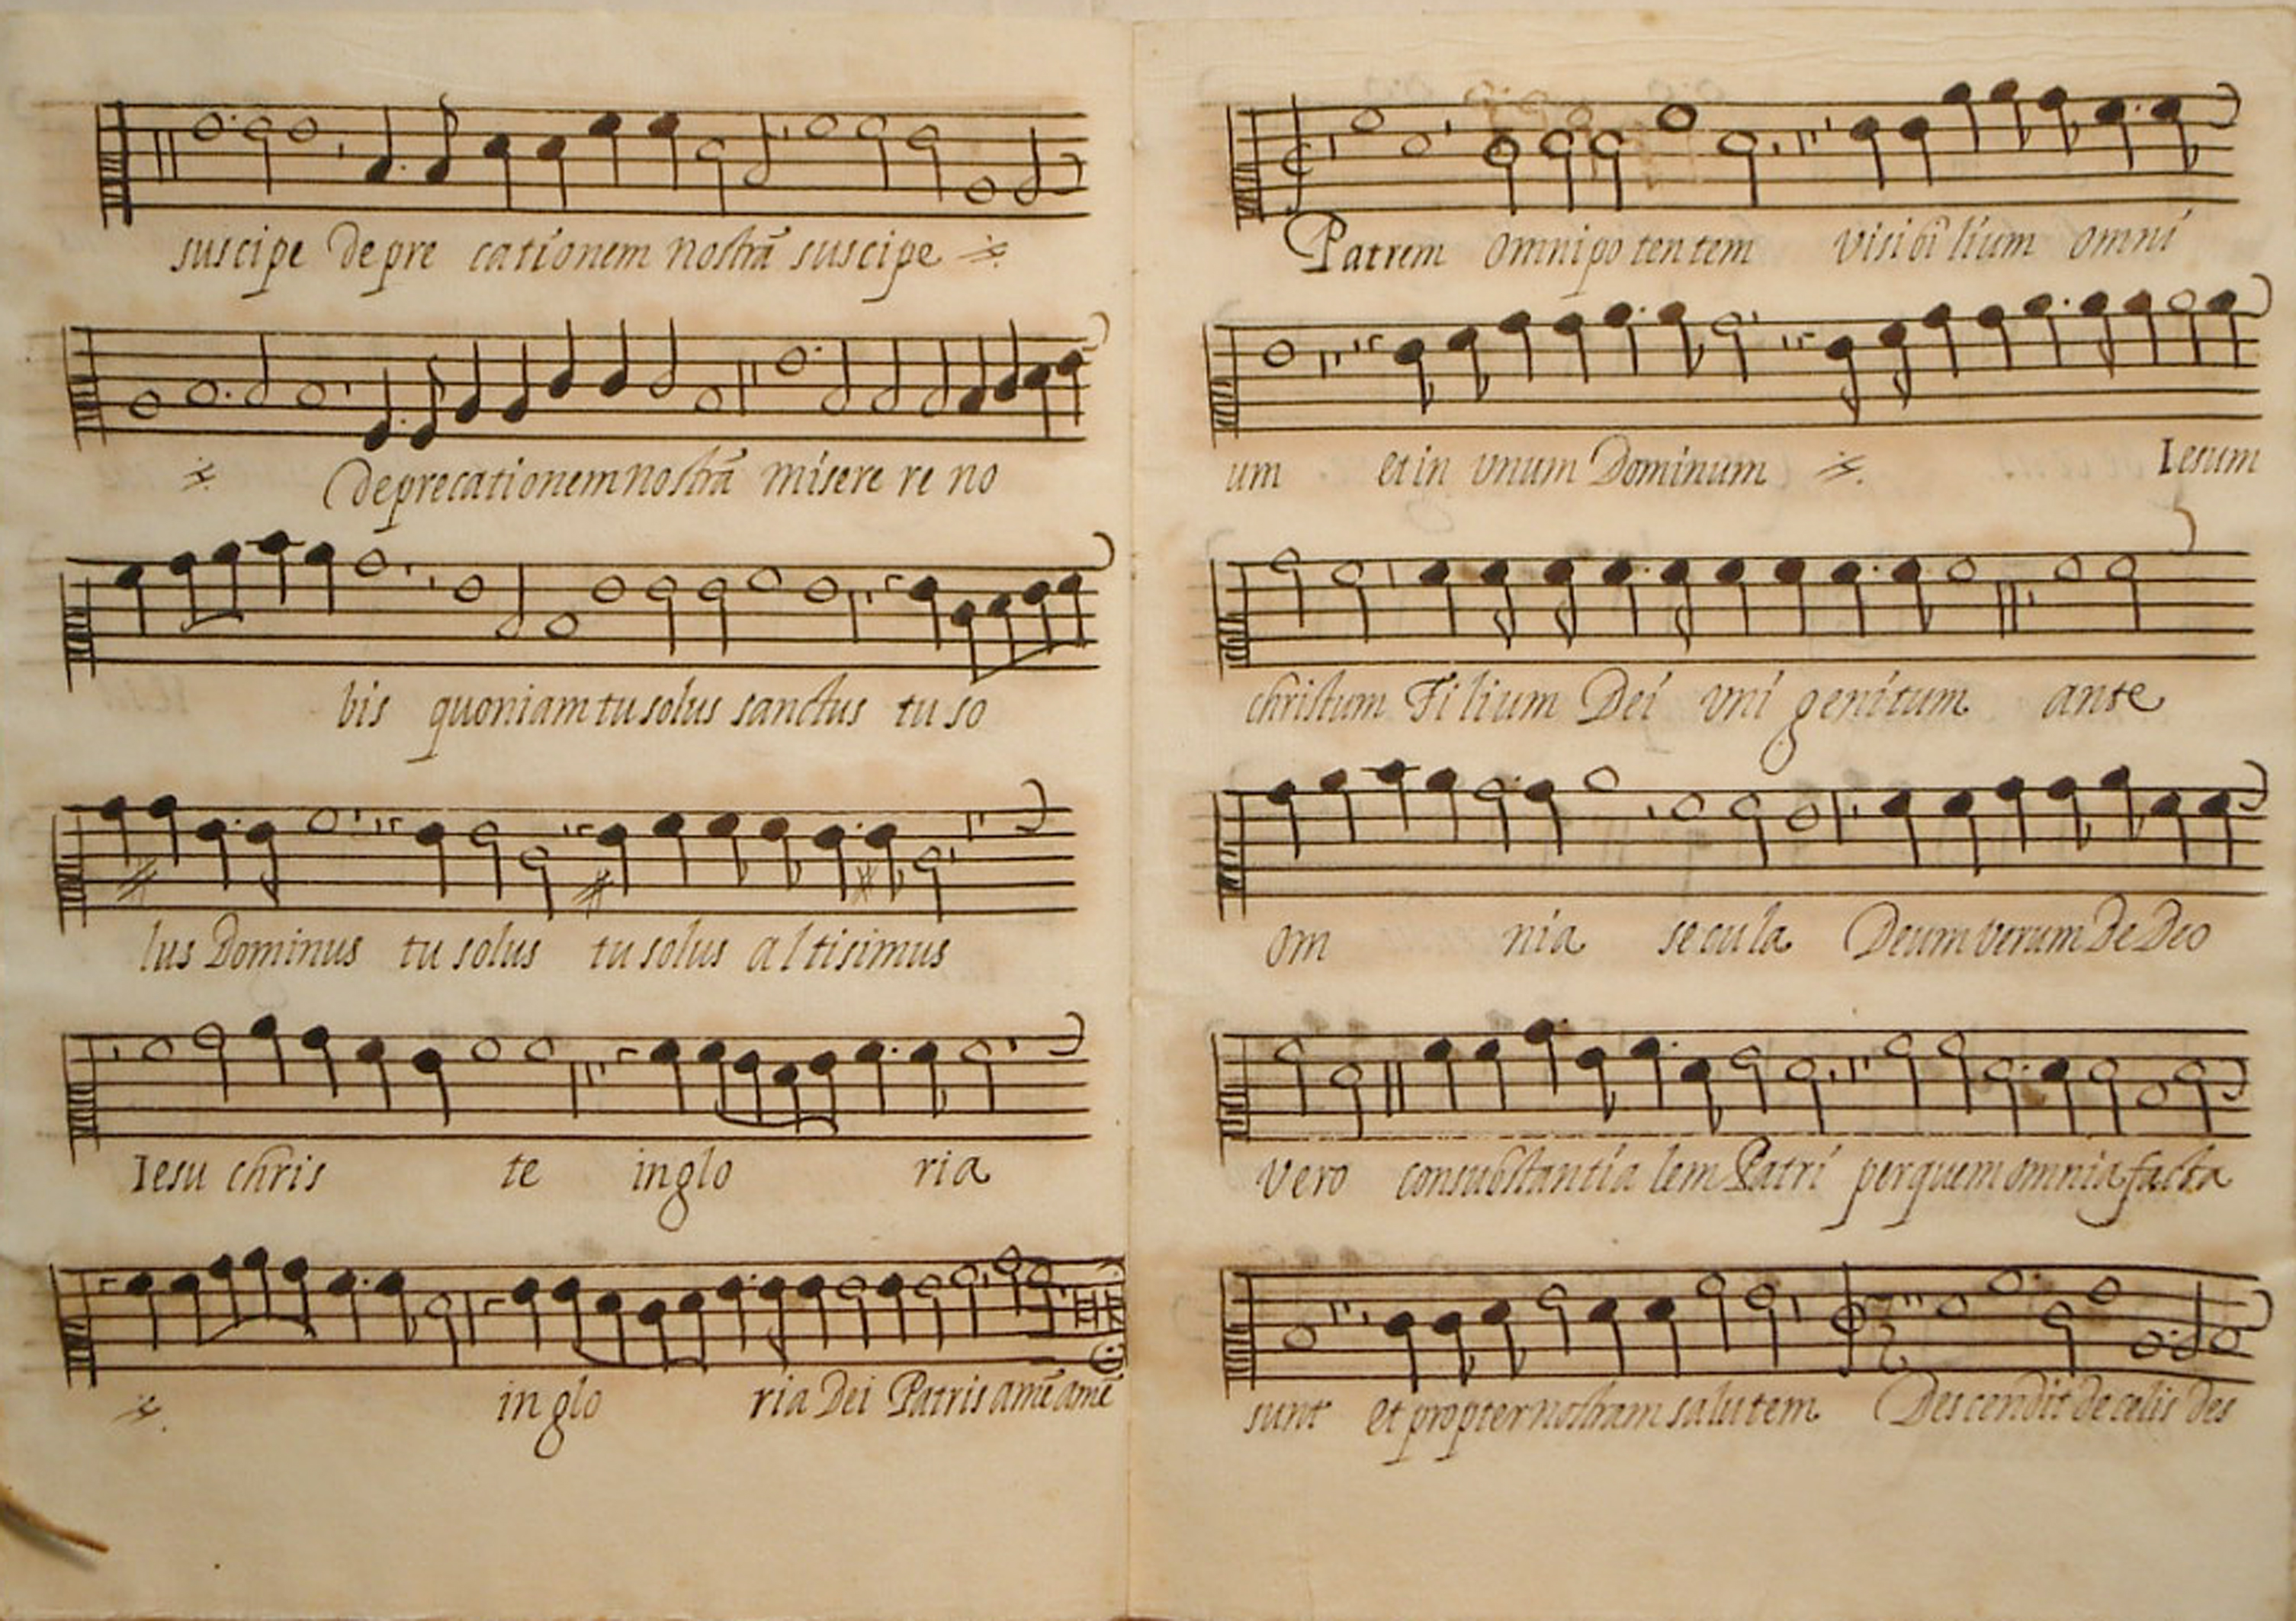 suscipe depre cationem nostrã suscipe
deprecationem nostrã misere re no
bis quoniam tu solus sanctus tu so
lus Dominus tu solus tu solus altisimus
Iesu chris te in glo ria
in glo ria Dei Patris amẽ amẽ
Patrem omnipotentem visibilium omni
um et in vnum Dominum Iesum
christum Filium Dei vni genitum ante
om nia secula Deum verum de Deo
vero consubstantia lem Patri per quem omnia facta
sunt et propter nostram salutem Descendit de celis des